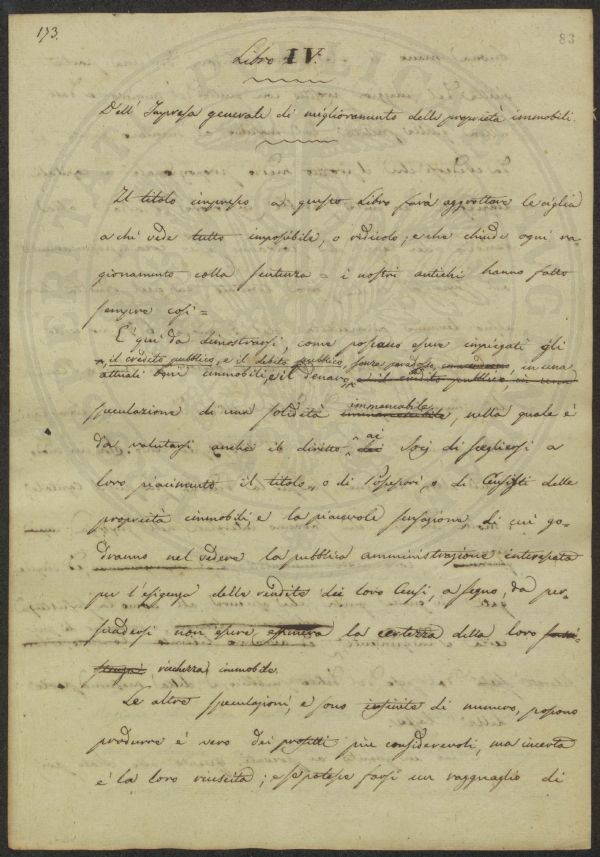 173.
83
Libro IV.
Dell' Impresa generale di miglioramento delle proprietà immobili.
Il titolo impresso a questo Libro farà aggrottare le ciglia
a chi vede tutto impossibile, o ridicolo, e che chiude ogni ra-
gionamento colla sentenza = i nostri antichi hanno fatto
sempre così =
È qui da dimostrarsi, come possano essere impiegati gli
, il credito pubblico, e il debito pubblico, senza paradosso, in una
attuali beni immobili, e il denaro, e il credito pubblico, in una
immancabile
speculazione di una solidità, nella quale è
da valutarsi anche il diritto ai dei Socj di scegliersi a
loro piacimento il titolo, o di Possessori, o di Censisti delle
proprietà immobili, e la piacevole sensazione, di cui go-
dranno nel vedere la pubblica amministrazione interessata
per l'esigenza delle rendite dei loro Censi, a segno, da per-
suadersi non essere effimera la certezza della loro
ricchezza immobile.
Le altre speculazioni, e sono infinite di numero, possono
produrre è vero dei profitti più considerevoli, ma incerta
è la loro riuscita; e se potesse farsi un ragguaglio di